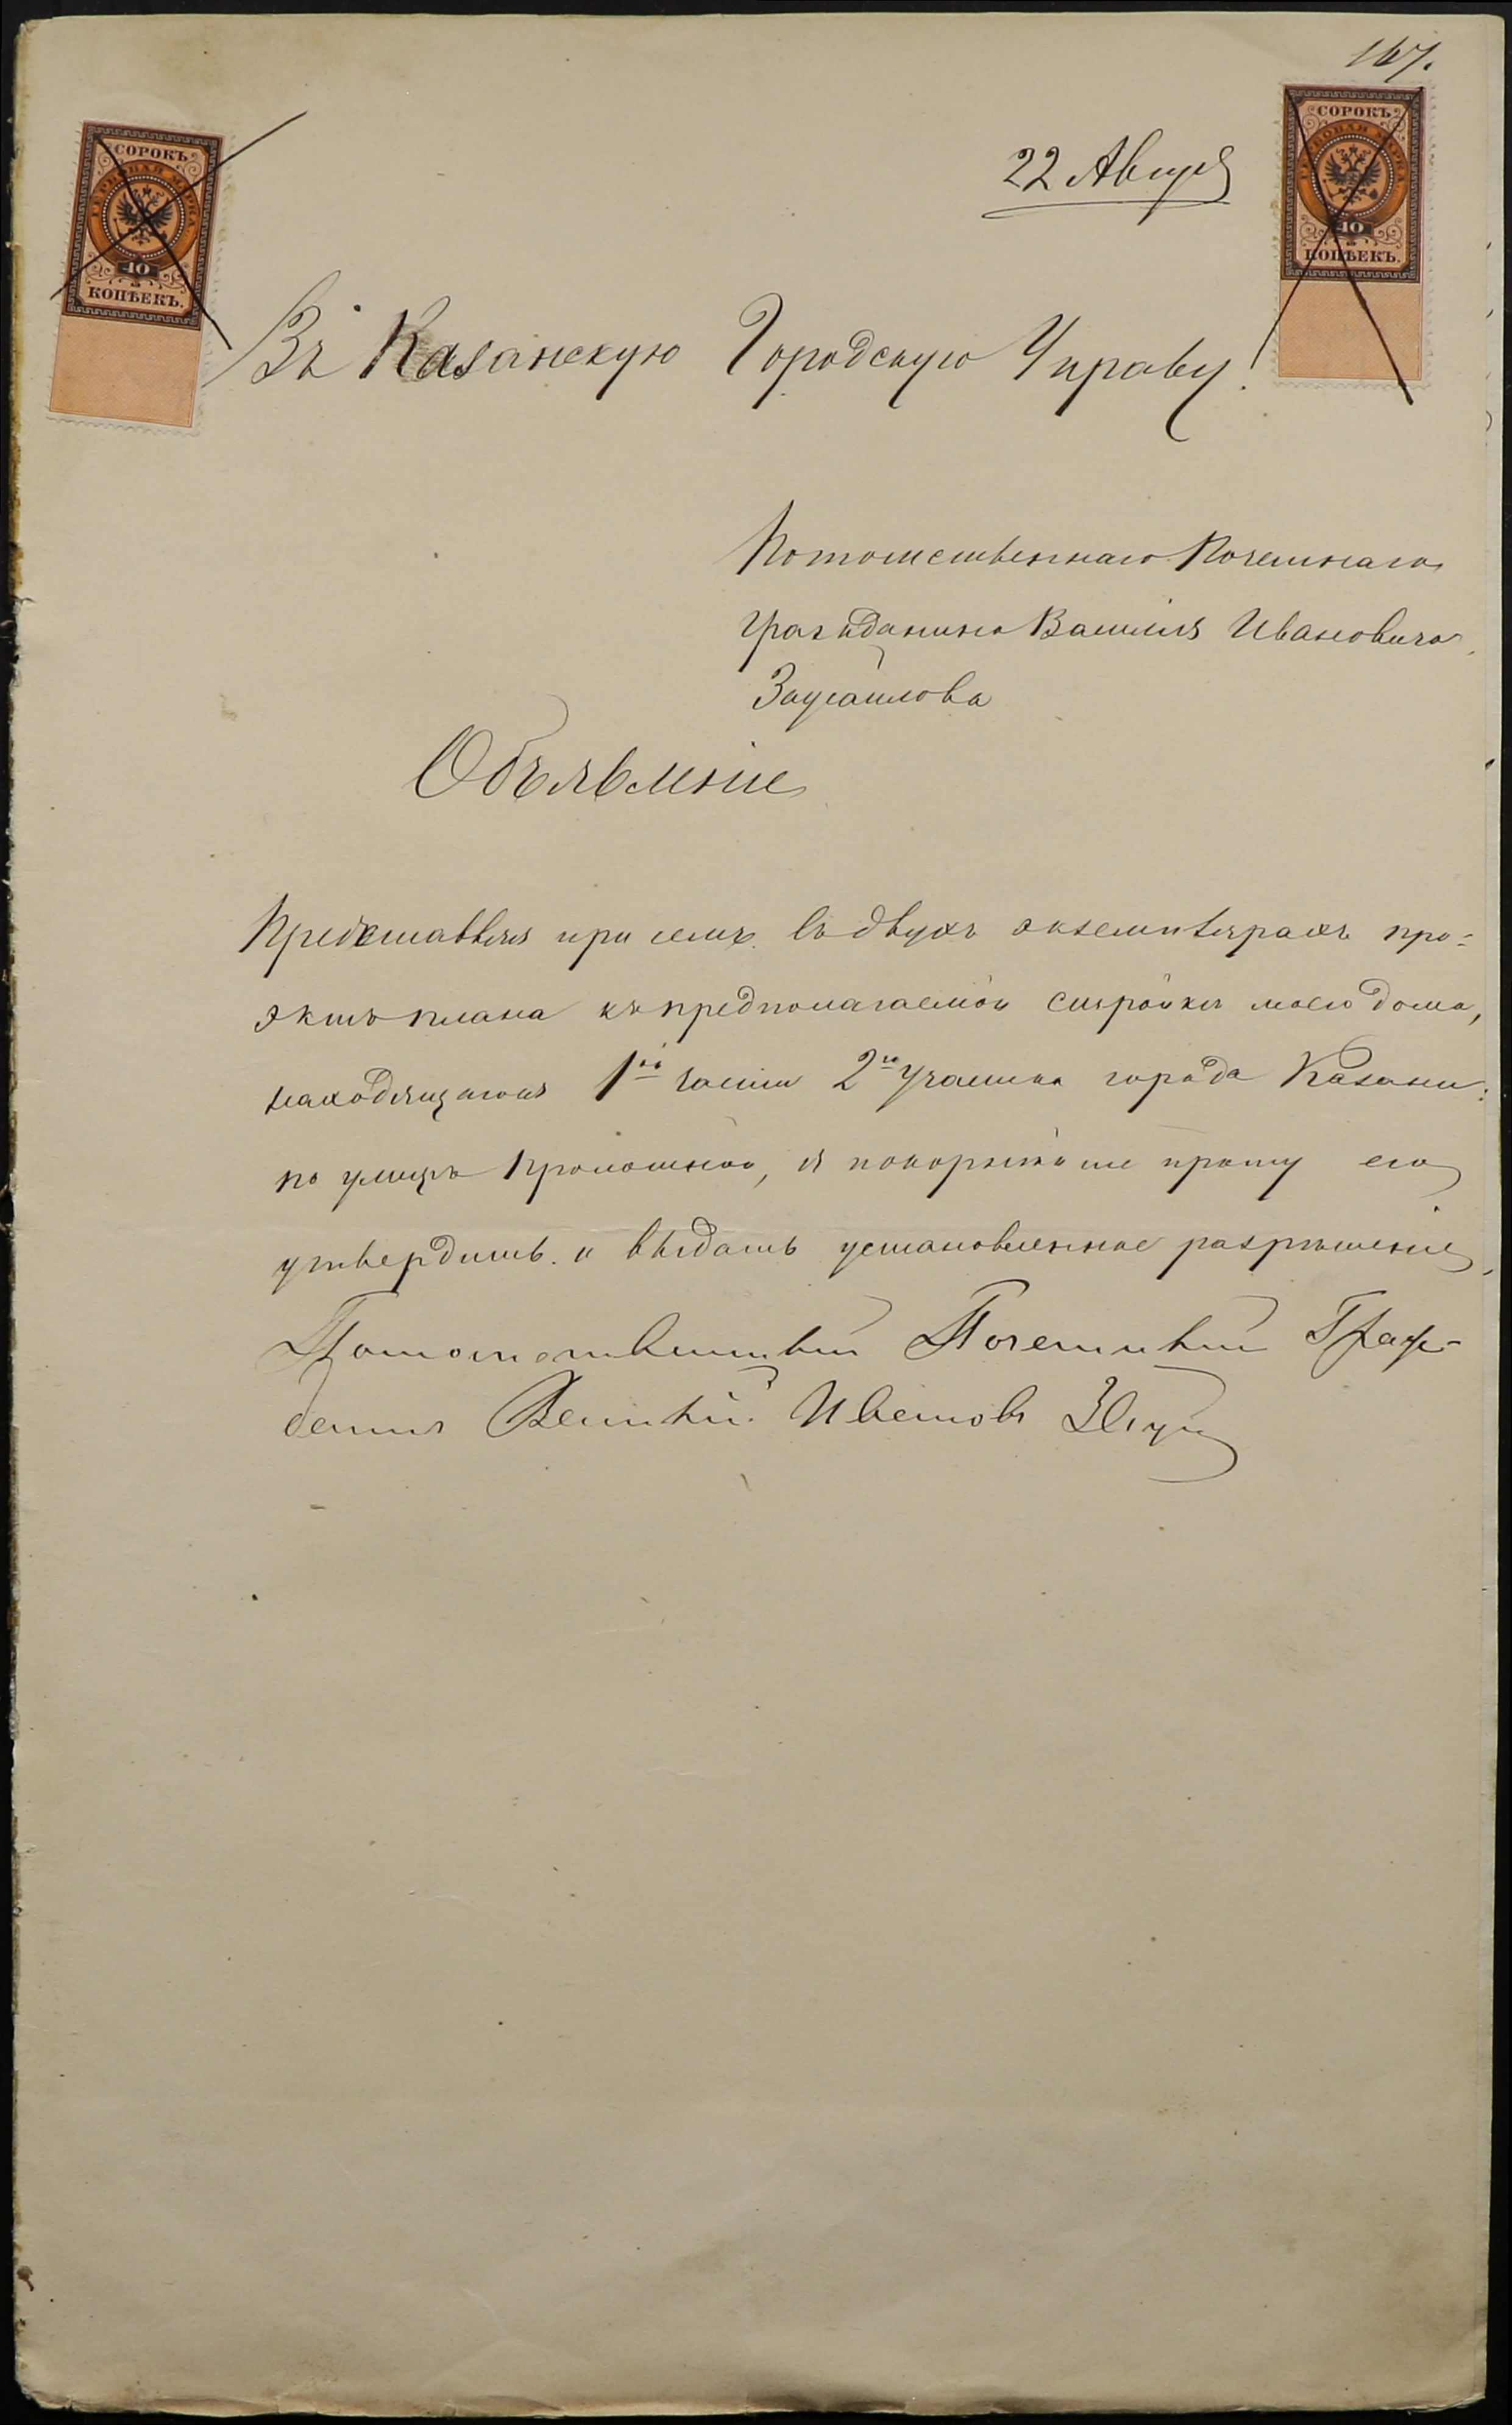 167.
СОРОКЪ
ГЕРБОВАЯ МАРКА
40
КОПѢЕКЪ.
СОРОКЪ
ГЕРБОВАЯ МАРКА
40
КОПѢЕКЪ.
22 Август
Въ Казанскую Городскую Управу.
Потомственнаго Почетнаго
Гражданина Василия Ивановича
Заусайлова
Объявленіе
Представляя при семъ въ двухъ экземплярахъ про=
эктъ плана къ предполагаемой стройкѣ моего дома,
находящагося 1ой части 2го участка города Казани
по улицѣ Проломной, я покорнѣйше прошу его
утвердить и выдать установленное разрѣшеніе.
Потомственный Почетный Граж-
данинъ Василий Ивановъ